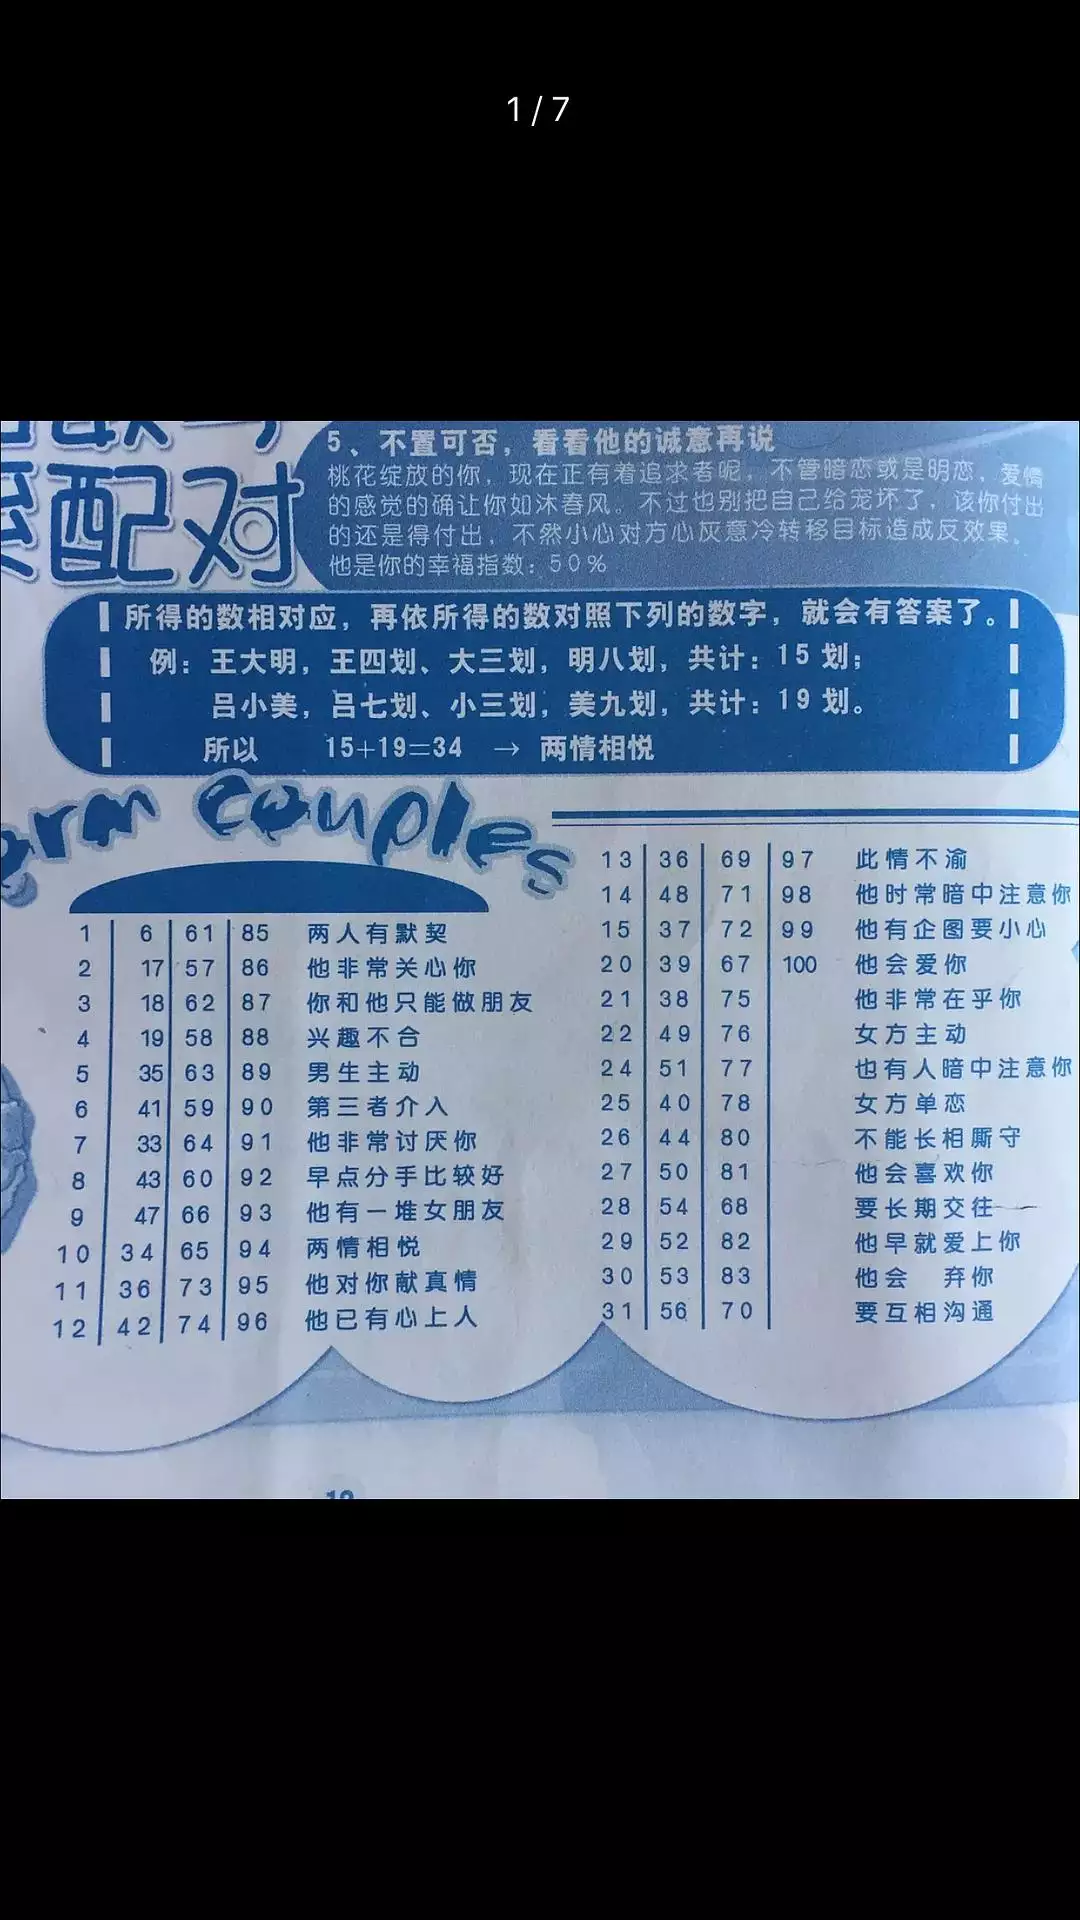 1 / 7
5、不置可否，看看他的诚意再说
桃花绽放的你，现在正有着追求者呢，不管暗恋或是明恋，爱情
的感觉的确让你如沐春风。不过也别把自己给宠坏了，该你付出
的还是得付出，不然小心对方心灰意冷转移目标造成反效果。
他是你的幸福指数：50%
配对
所得的数相对应，再依所得的数对照下列的数字，就会有答案了。
例：王大明，王四划、大三划，明八划，共计：15 划；
吕小美，吕七划、小三划，美九划，共计：19 划。
所以 15+19=34 → 两情相悦
arm couples
1 6 61 85 两人有默契
2 17 57 86 他非常关心你
3 18 62 87 你和他只能做朋友
4 19 58 88 兴趣不合
5 35 63 89 男生主动
6 41 59 90 第三者介入
7 33 64 91 他非常讨厌你
8 43 60 92 早点分手比较好
9 47 66 93 他有一堆女朋友
10 34 65 94 两情相悦
11 36 73 95 他对你献真情
12 42 74 96 他已有心上人
13 36 69 97 此情不渝
14 48 71 98 他时常暗中注意你
15 37 72 99 他有企图要小心
20 39 67 100 他会爱你
21 38 75 他非常在乎你
22 49 76 女方主动
24 51 77 也有人暗中注意你
25 40 78 女方单恋
26 44 80 不能长相厮守
27 50 81 他会喜欢你
28 54 68 要长期交往
29 52 82 他早就爱上你
30 53 83 他会 弃你
31 56 70 要互相沟通